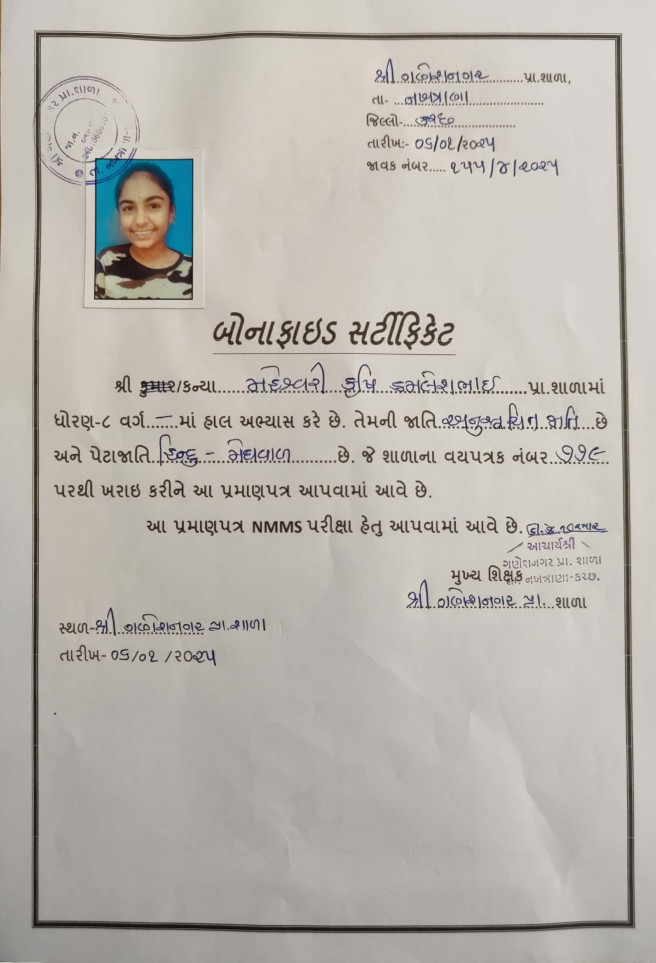 શ્રી ગણેશનગર પ્રા.શાળા,
તા- નખત્રાણા
જિલ્લો- કચ્છ
તારીખ:- ૦૬/૦૨/૨૦૨૫
જાવક નંબર..... ૨૫૫/૪/૨૦૨૫
બોનાફાઇડ સર્ટીફિકેટ
શ્રી કુમાર/કન્યા...... મહેશ્વરી ક્રૃષિ કમલેશભાઇ ......પ્રા.શાળામાં
ધોરણ-૮ વર્ગ ..–..માં હાલ અભ્યાસ કરે છે. તેમની જાતિ અનુસૂચિત જાતિ..છે
અને પેટાજાતિ. હિન્દુ - મેઘવાળ ..........છે. જે શાળાના વયપત્રક નંબર ૭૭૯
પરથી ખરાઇ કરીને આ પ્રમાણપત્ર આપવામાં આવે છે.
આ પ્રમાણપત્ર NMMS પરીક્ષા હેતુ આપવામાં આવે છે.
આચાર્યશ્રી
ગણેશનગર પ્રા. શાળા
મુખ્ય શિક્ષક નખત્રાણા-કચ્છ.
શ્રી ગણેશનગર પ્રા. શાળા
સ્થળ-શ્રી ગણેશનગર પ્રા.શાળા
તારીખ- ૦૬/૦૨/૨૦૨૫